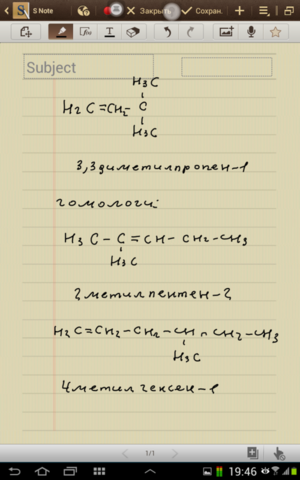 S Note
Закрыть
Сохран.
Subject
H₃C
H₂C=CH-C
H₃C
3,3диметилпропен-1
гомологи:
H₃C-C=CH-CH₂-CH₃
H₃C
2метилпентен-2
H₂C=CH₂-CH₂-CH-CH₂-CH₃
H₃C
4метилгексен-1
1/1
19:46